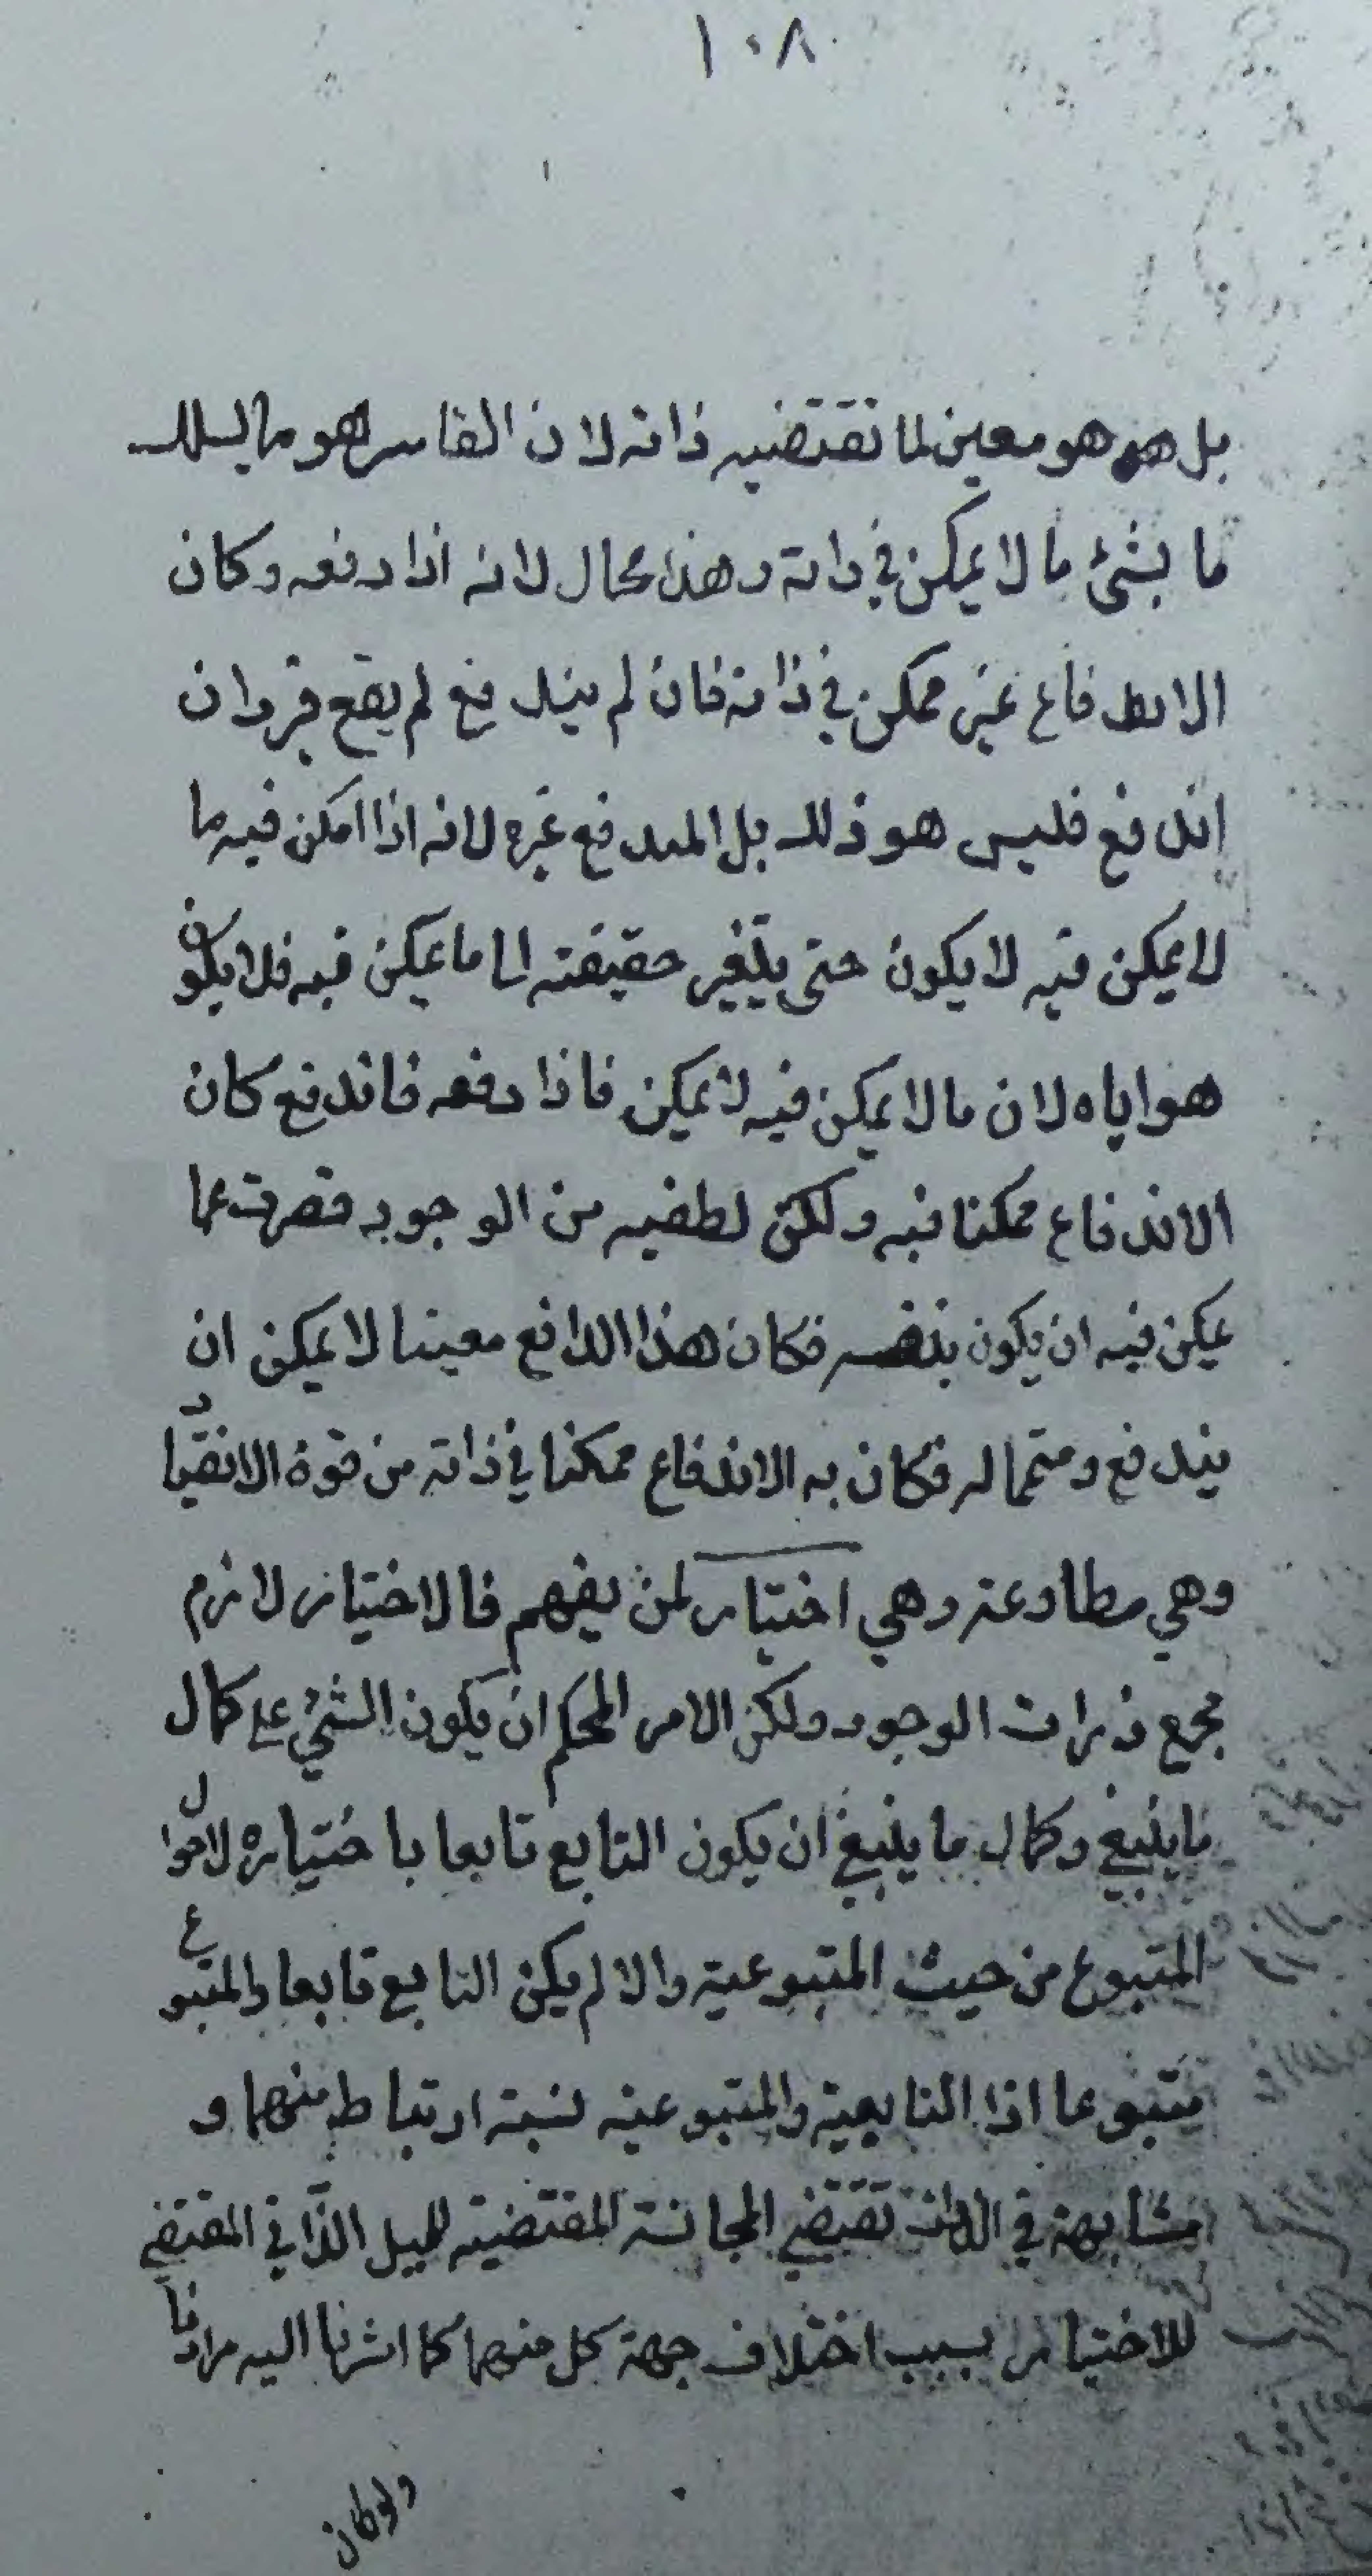 ١٠٨
بل هو هو معين لما تقتضيه ذاته لان القاسر هو ما يسلك
ما بشئ ما لا يمكن في ذاته وهذا محال لانه اذا دفعه وكان
الاندفاع غير ممكن في ذاته فان لم يندفع لم يقع قسر وان
اندفع فليس هو ذلك بل المندفع غيره لانه اذا امكن فيه ما
لا يمكن فيه لا يكون حتى يتغير حقيقته الى ما يمكن فيه فلا يكون
هو اياه لان ما لا يمكن فيه لا يمكن فاذا دفعه فاندفع كان
الاندفاع ممكنا فيه ولكن لطفيه من الوجود قصرت عما
يمكن فيه ان يكون بنفسه فكان هذا الدافع معينا لا يمكن ان
يندفع ومتمما له فكان به الاندفاع ممكنا في ذاته من قوة الانقياد
وهي مطاوعة وهي اختيار لمن يفهم فالاختيار لازم
لجميع ذرات الوجود ولكن الامر المحكم ان يكون الشئ على كمال
ما ينبغي وكمال ما ينبغي ان يكون التابع تابعا باختياره لاحوال
المتبوع من حيث المتبوعية والا لم يكن التابع تابعا والمتبوع
متبوعا اذا التابعية والمتبوعية نسبة ارتباط منهما و
مشابهة في الذات تقتضي المجانسة المقتضية للميل الذاتي المقتضي
للاختيار بسبب اختلاف جهة كل منهما كما اشرنا اليه مرادفا
ولو كان